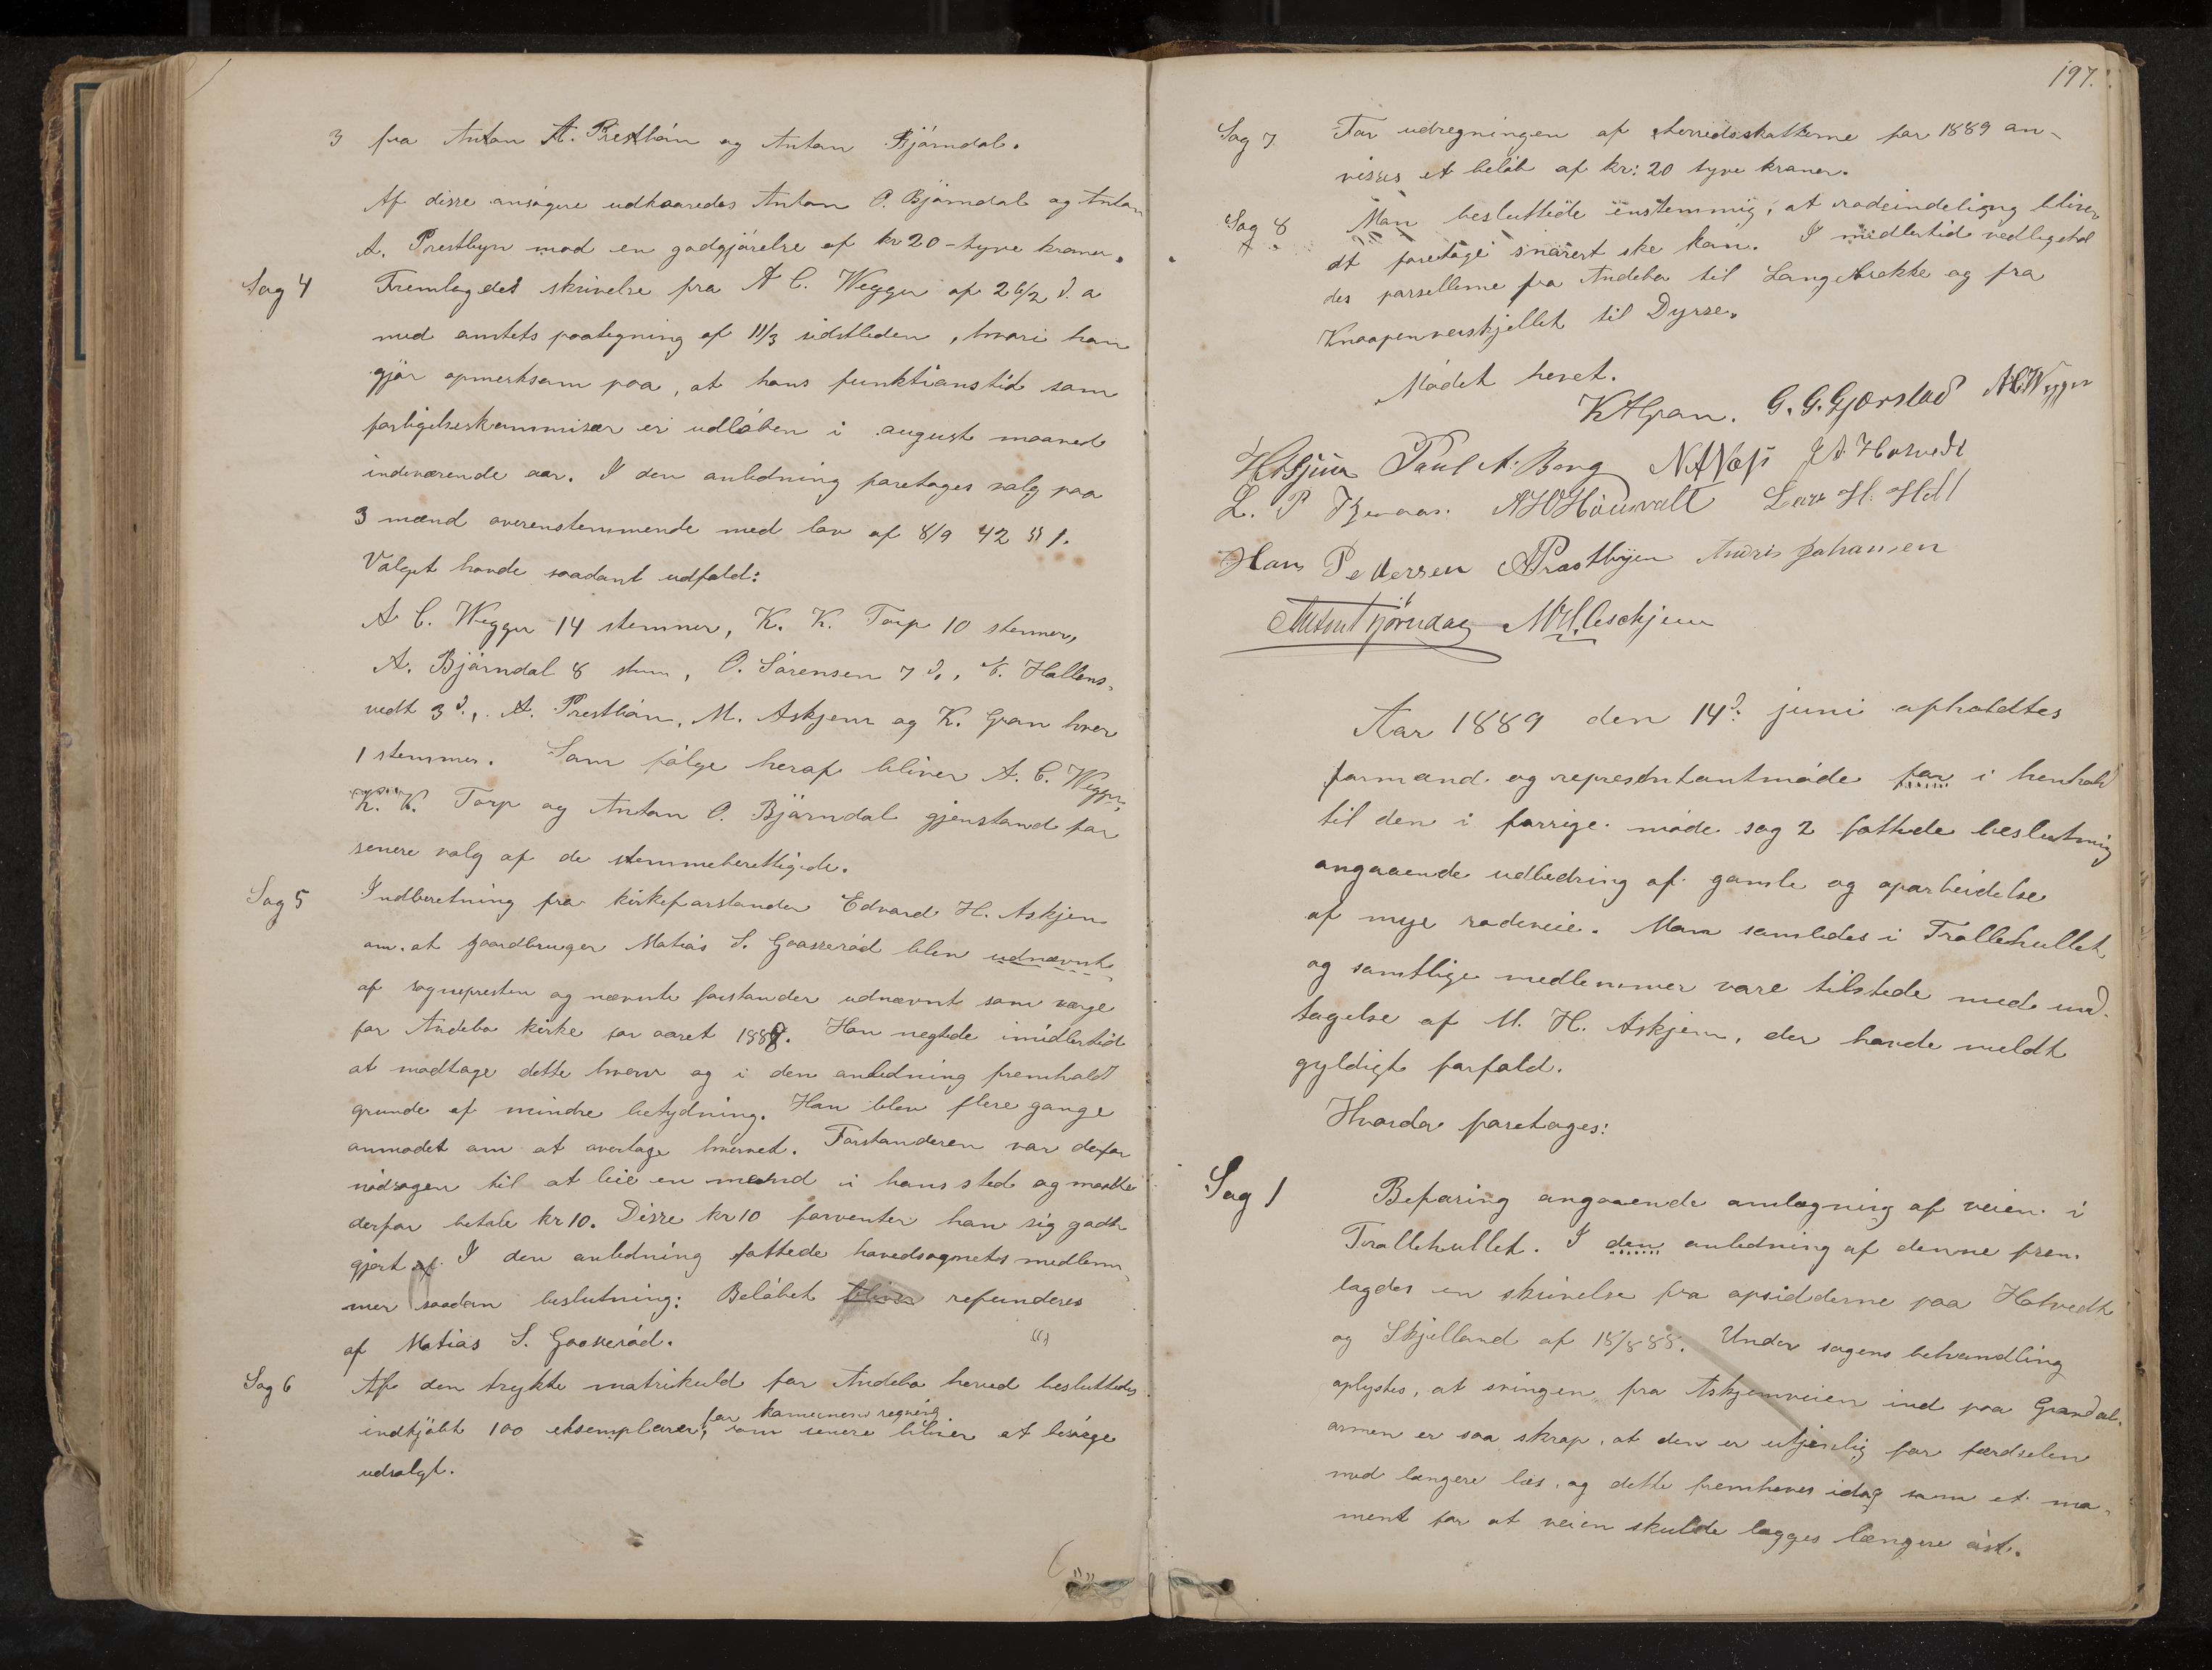 3 fra Anton A. Prestbön og Anton Bjørndal.
Af disse ansøgere udkaaredes Anton O. Bjørndal og Anton
A. Prestbyn mod en godgjørelse af kr 20 - tyve kroner.
Sag 4 Fremlagdes skrivelse fra A C. Wegger af 26/2 d. a
med amtets paategning af 11/3 sidstleden, hvori han
gjør opmerksom paa, at hans funktionstid som
forligelseskommisær er udløben i august maaned
indeværende aar. I den anledning foretoges valg paa
3 mænd overenstemmende med lov af 8/9 42 § 1.
Valget havde saadant udfald:
A C. Wegger 14 stemmer, K. K. Torp 10 stemmer,
A. Bjørndal 8 stem, O. Sørensen 7 d., N. Hallens-
vedt 3 d., A. Prestbön, M. Askjem og K. Gran hver
1 stemmer. Som følge heraf bliver A. C. Wegger,
K. K. Torp og Anton O. Bjørndal gjenstand for
senere valg af de stemmeberettigede.
Sag 5 Indberetning fra kirkeforstander Edvard H. Askjem
om at gaardbruger Matias S. Gaasserød blev udnævnt
af sognepresten og nævnte forstander udnævnt som værge
for Andebo kirke for aaret 1888. Han negtede imidlertid
at modtage dette hverv og i den anledning fremholdt
grunde af mindre betydning. Han blev flere gange
anmodet om at overtage hvervet. Forstanderen var derfor
nødsagen til at leie en mand i hans sted og maatte
derfor betale kr 10. Disse kr 10 forventer han sig godt
gjort af I den anledning fattede hovedsognets medlem-
mer saadan beslutning: Beløbet bliver refunderes
af Matias S. Gaasserød.
Sag 6 Af den trykte matrikuld for Andebo herred besluttedes
indkjøbt 100 eksemplarer, for komunens regning
som senere bliver at besørge
udsolgt.
197.
Sag 7 For udregningen af herredsskatterne for 1889 an-
vises et beløb af kr: 20 tyve kroner.
Sag 8 Man besluttede enstemmig, at rodeindeling bliver
at foretage snarest ske kan. I midlertid vedligehol
des parsellerne fra Andebo til Langebrekke og fra
Knaapenverskjellet til Dyrsø.
Mødet hevet.
K A Gran. G. G. Gjerstad A C Wegger
Paul A. Berg N A Næss
L. P. A H Hounvalt Lars H.
Hans Pettersen A Præstbyen Andris Johansen
Anton Bjørndal M H. Aschjem
Aar 1889 den 14d: juni afholdtes
formand og represæntantmøde for i henhold
til den i forrige møde sag 2 fattede beslutning
angaaende udbedring af gamle og oparbeidelse
af nye rodeveie. Man samledes i Trollehullet
og samtlige medlemmer vare tilstede med und-
tagelse af M. H. Askjem, der havde meldt
gyldigt forfald.
Hvorda foretoges:
Sag 1 Befaring angaaende omlægning af veien i
Trollehullet. I den anledning af denne frem-
lagdes en skrivelse fra opsidderne paa Hotvedt
og Skjelland af 18/8 88. Under sagens behandling
oplystes, at svingen fra Askjemveien ind paa Grandal-
armen er saa skrap, at den er utjenlig for færdselen
med længere læs, og dette fremheves idag som et mo-
ment for at veien skulde lægges længere øst.